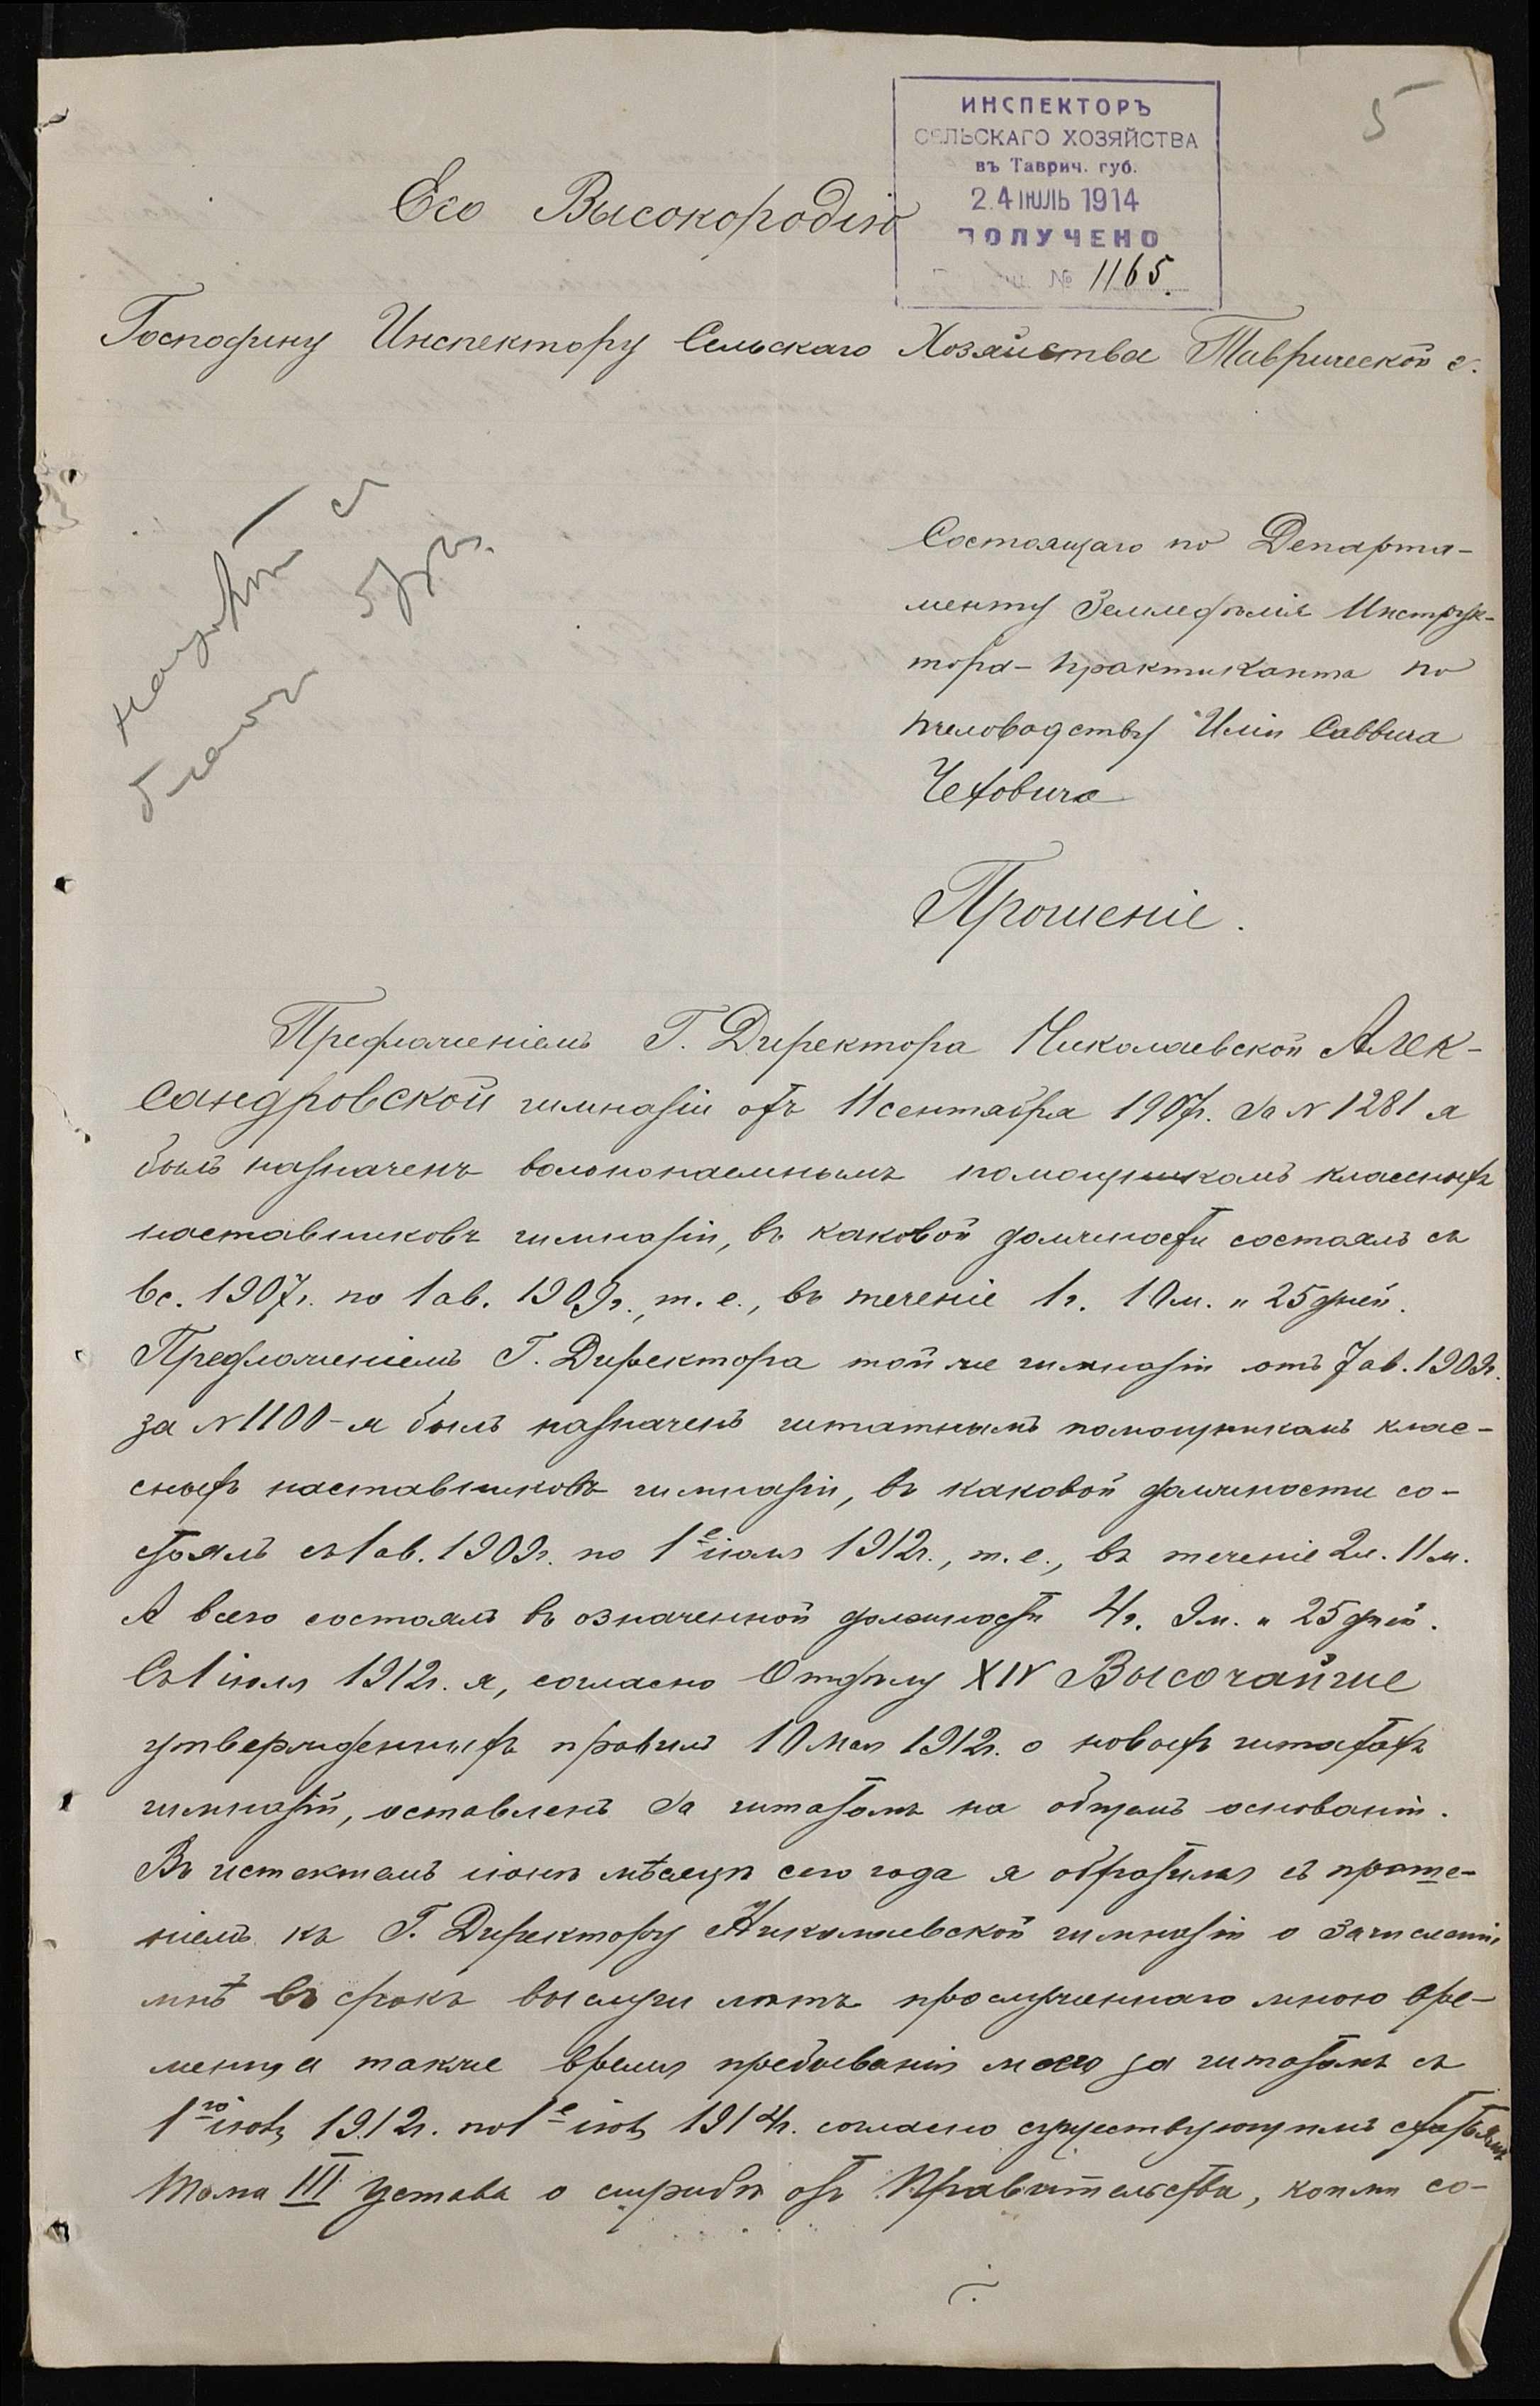 5
ИНСПЕКТОРЪ
СЕЛЬСКАГО ХОЗЯЙСТВА
въ Таврич. губ.
24 ІЮЛЬ 1914
ПОЛУЧЕНО
№ 1165.
Его Высокородію
Господину Инспектору Сельскаго Хозяйства Таврической г.
Состоящаго по Департа-
менту Земледѣлія Инструк-
тора-практиканта по
пчеловодству Иліи Саввича
Чеховича
Прошеніе.
Предложеніемъ Г. Директора Николаевской Алек-
сандровской гимназіи отъ 11 сентября 1907г. за № 1281 я
былъ назначенъ вольнонаемнымъ помощникомъ классныхъ
наставниковъ гимназіи, въ каковой должности состоялъ съ
6 с. 1907г. по 1 ав. 1909г., т. е., въ теченіе 1г. 10м. и 25 дней.
Предложеніемъ Г. Директора той же гимназіи отъ 7 ав. 1909г.
за № 1100 - я былъ назначенъ штатнымъ помощникомъ клас-
сныхъ наставниковъ гимназіи, въ каковой должности со-
стоялъ съ 1 ав. 1909г. по 1е іюля 1912г., т. е., въ теченіе 2л. 11м.
А всего состоялъ въ означенной должности 4г. 9м. и 25 дней.
Съ 1 іюля 1912г. я, согласно Отдѣлу XIV Высочайше
утвержденныхъ правилъ 10 Мая 1912г. о новыхъ штатахъ
гимназій, оставленъ за штатомъ на общемъ основаніи.
Въ истекшемъ іюнѣ мѣсяцѣ сего года я обратился съ проше-
ніемъ къ Г. Директору Николаевской гимназіи о зачисленіи
мнѣ въ срокъ выслуги лѣтъ прослуженнаго мною вре-
мени, а также время пребыванія моего за штатомъ съ
1го іюля 1912г. по 1е іюля 1914г. согласно существующимъ статьямъ
Тома III Устава о службѣ отъ Правительства, коими со-